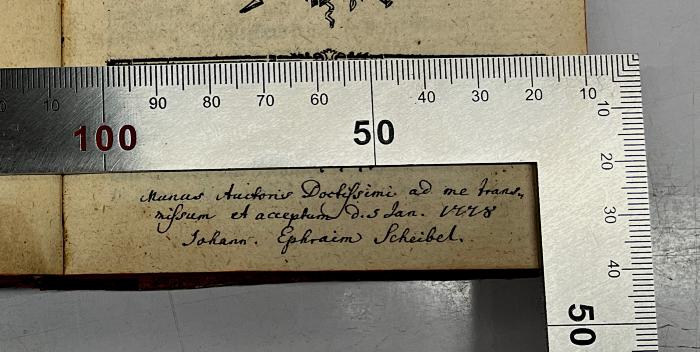 10 90 80 70 60 40 30 20 10
100 50
10
20
30
40
50
Munus Auctoris Doctissimi ad me trans-
missum et acceptum d. 5 Jan. 1778
Johann. Ephraim Scheibel.